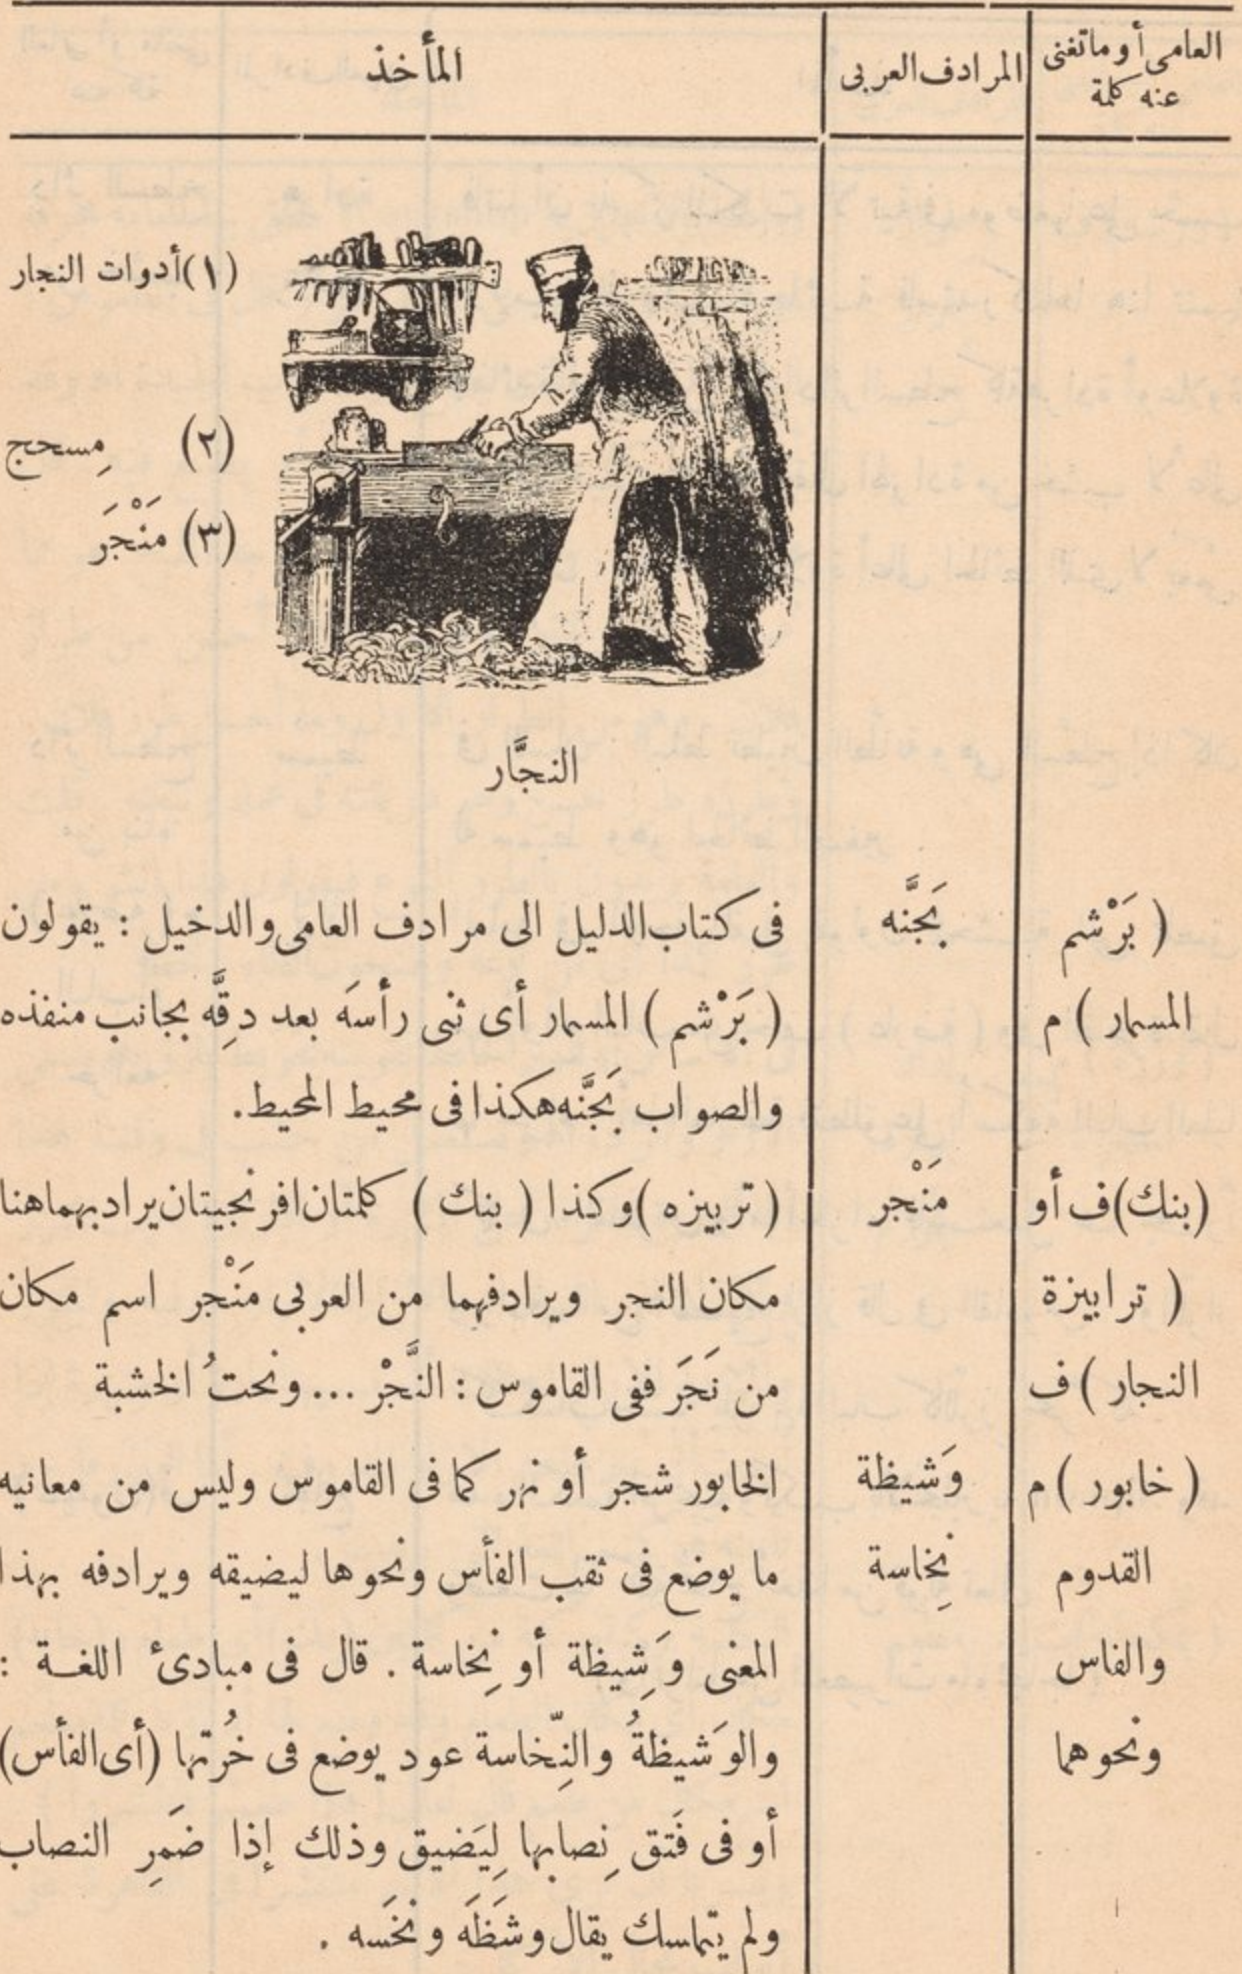 العامى أو ماتغنى
عنه كلمة
المرادف العربى
المأخذ
(١) أدوات النجار
(٢) مِسحج
(٣) مَنْجَر
النجَّار
( بَرْشم
المسمار ) م
بَجَّنه
فى كتاب الدليل الى مرادف العامى والدخيل : يقولون
( بَرْشم ) المسمار أى ثنى رأسَه بعد دِقَّه بجانب منفذه
والصواب بَجَّنه هكذا فى محيط المحيط .
(بنك) ف أو
( ترابيزة
النجار ) ف
مَنْجر
( تربيزه ) وكذا ( بنك ) كلمتان افرنجيتان يراد بهما هنا
مكان النجر ويرادفهما من العربى مَنْجر اسم مكان
من نَجَرَ ففى القاموس : النَّجْر ... ونحتُ الخشبة
( خابور ) م
القدوم
والفاس
ونحوهما
وَشيظة
نِخاسة
الخابور شجر أو نهر كما فى القاموس وليس من معانيه
ما يوضع فى ثقب الفأس ونحوها ليضيقه ويرادفه بهذا
المعنى وَشِيظة أو نِخاسة . قال فى مبادئ اللغة :
والوَشيظةُ والنِّخاسة عود يوضع فى خُرتها (أى الفأس)
أو فى فَتق نِصابها لِيَضيق وذلك إذا ضَمَرِ النصاب
ولم يتماسك يقال وشَظَه ونخَسه .